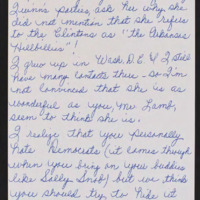 Quinn's parties, ask her why she
did not mention that she refers
to the Clintons as "the Arkansas
Hillbillies"!
I grew up in Wash. D.C. & I still
have many contacts there - so I'm
not convinced that she is as
wonderful as you, Mr. Lamb,
seem to think she is.
I realize that you personally
hate Democrats (it comes through
when you bring on your buddies
like Sally Snob) but we think
you should try to hide it